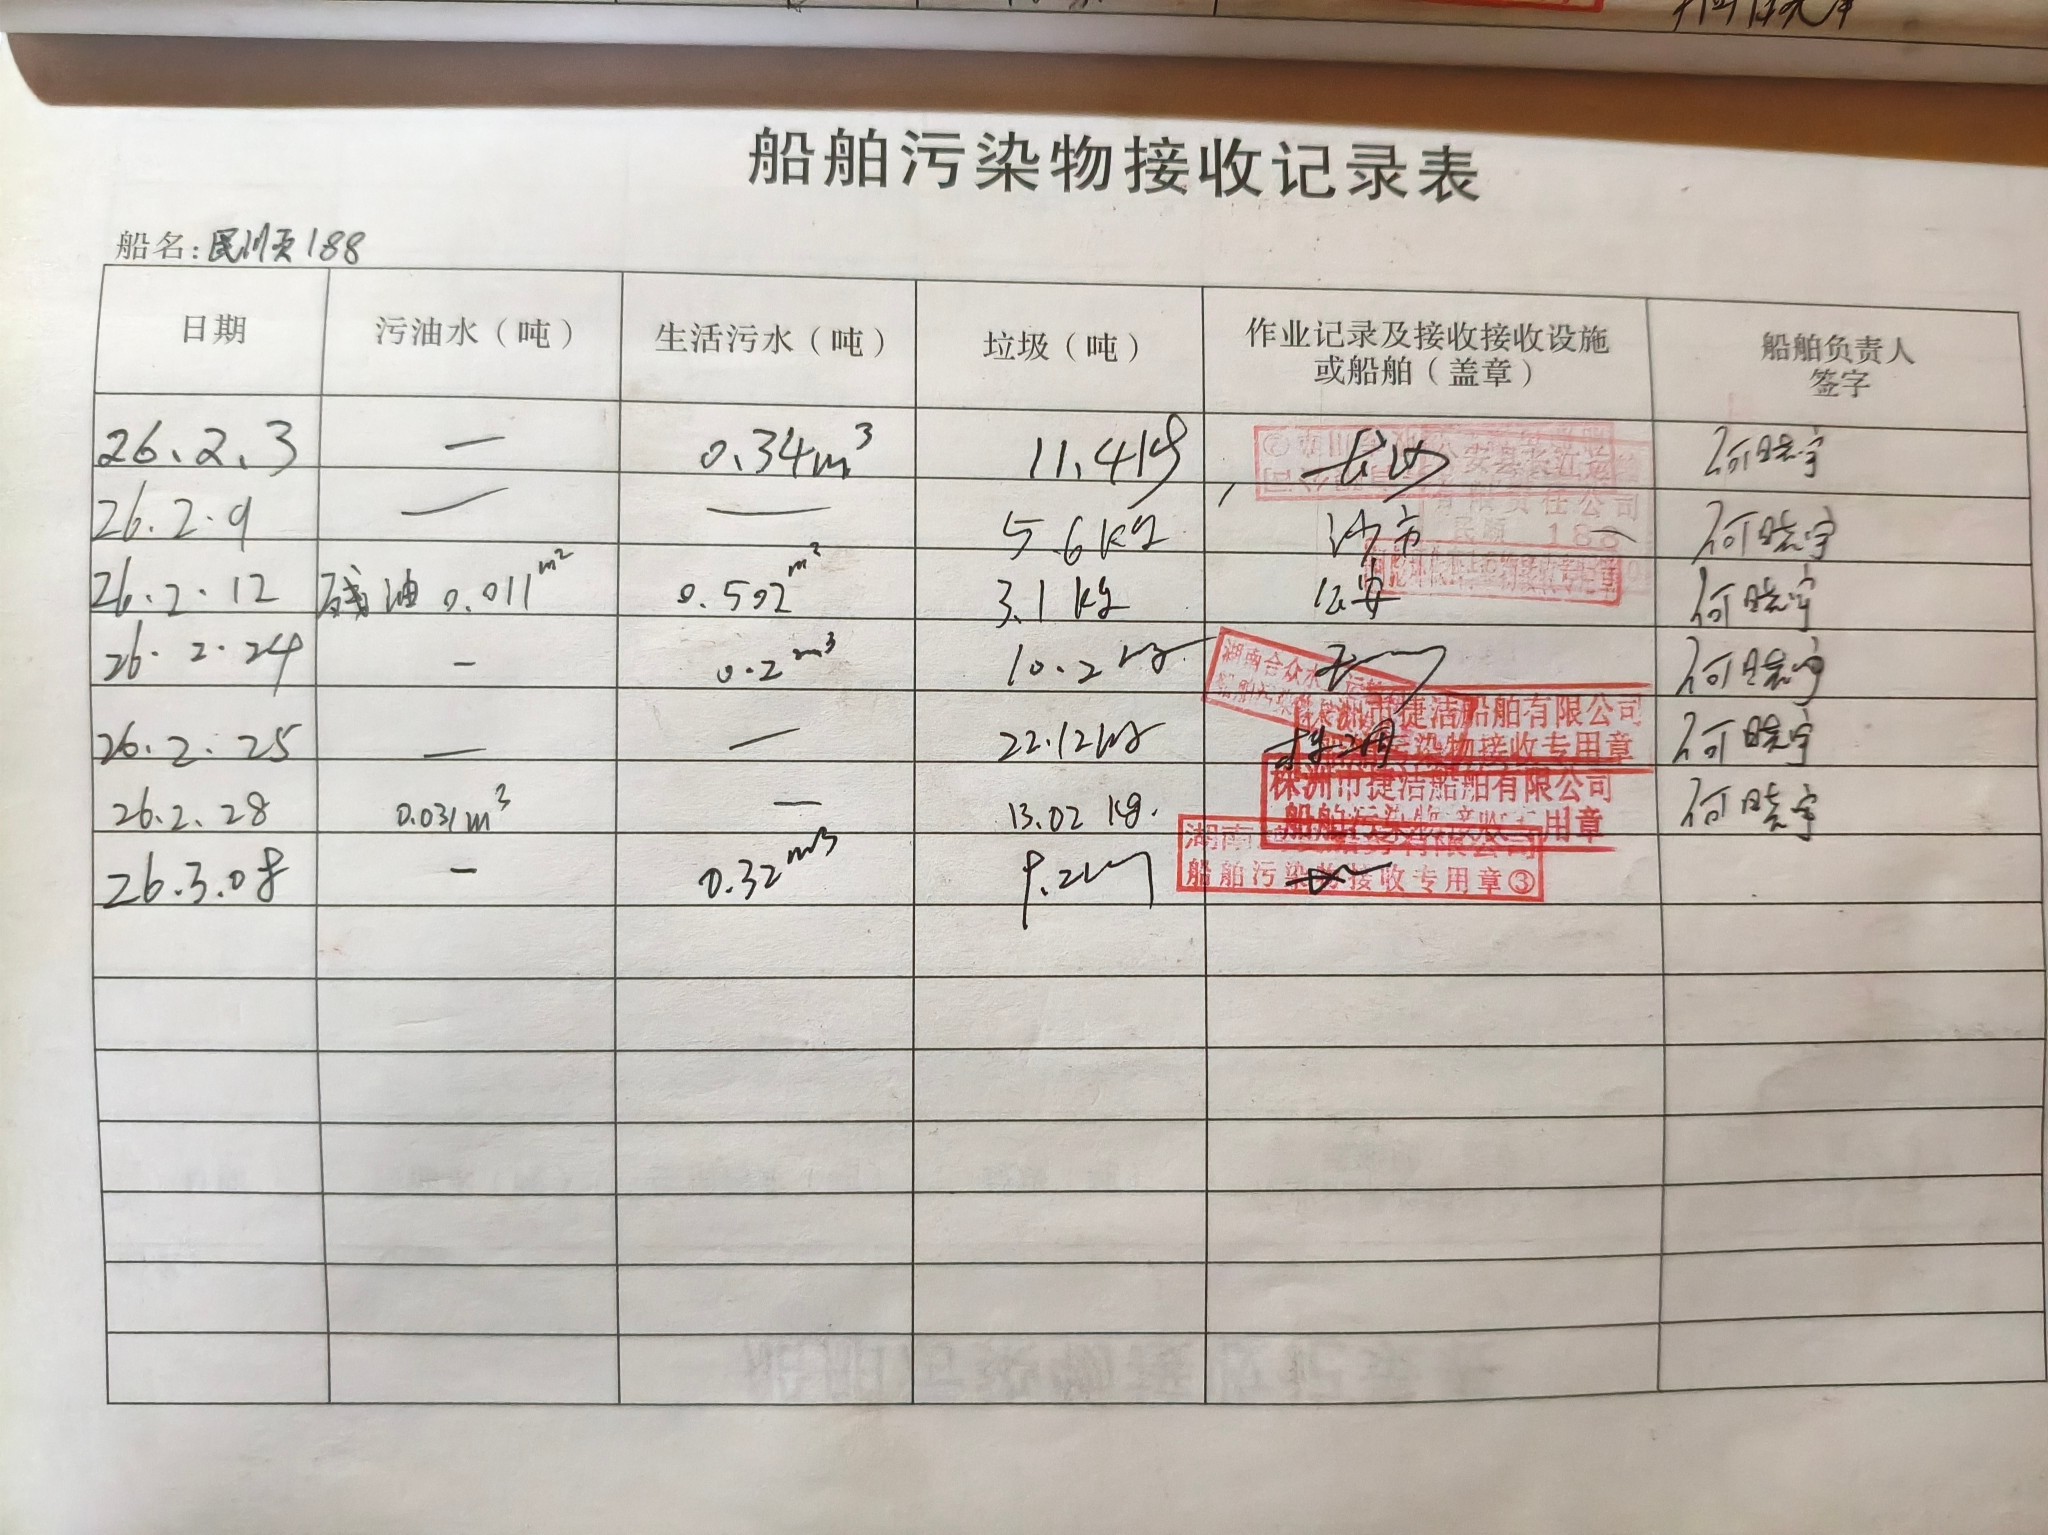 船舶污染物接收记录表
船名: 民顺188
日期 污油水（吨） 生活污水（吨） 垃圾（吨） 作业记录及接收接收设施或船舶（盖章） 船舶负责人签字
26.2.3 — 0.34m³ 11.4kg 长沙 何晓宇
26.2.9 — — 5.6kg 沙市 何晓宇
26.2.12 残油 0.011m² 0.502m² 3.1kg 公安 何晓宇
26.2.24 - 0.2m³ 10.2kg 何晓宇
26.2.25 — — 22.12kg 株洲 何晓宇
26.2.28 0.031m³ — 13.02kg. 何晓宇
26.3.08 - 0.32m³ 9.2kg
公安县长江运
有限责任公司
民顺 188
湖南合众水
株洲市捷洁船舶有限公司
船舶污染物接收专用章
株洲市捷洁船舶有限公司
船舶污染物接收专用章
湖南 有限公司
船舶污染物接收专用章③